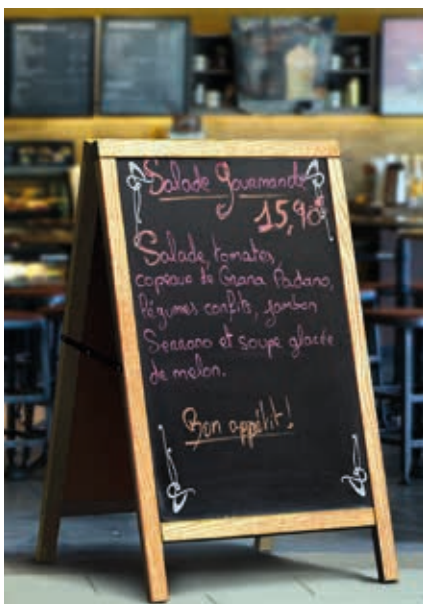 Salade Gourmande
15,90
Salade, tomates,
copeaux de Grana Padano,
légumes confits, jambon
Serrano et soupe glacée
de melon.
Bon appétit!